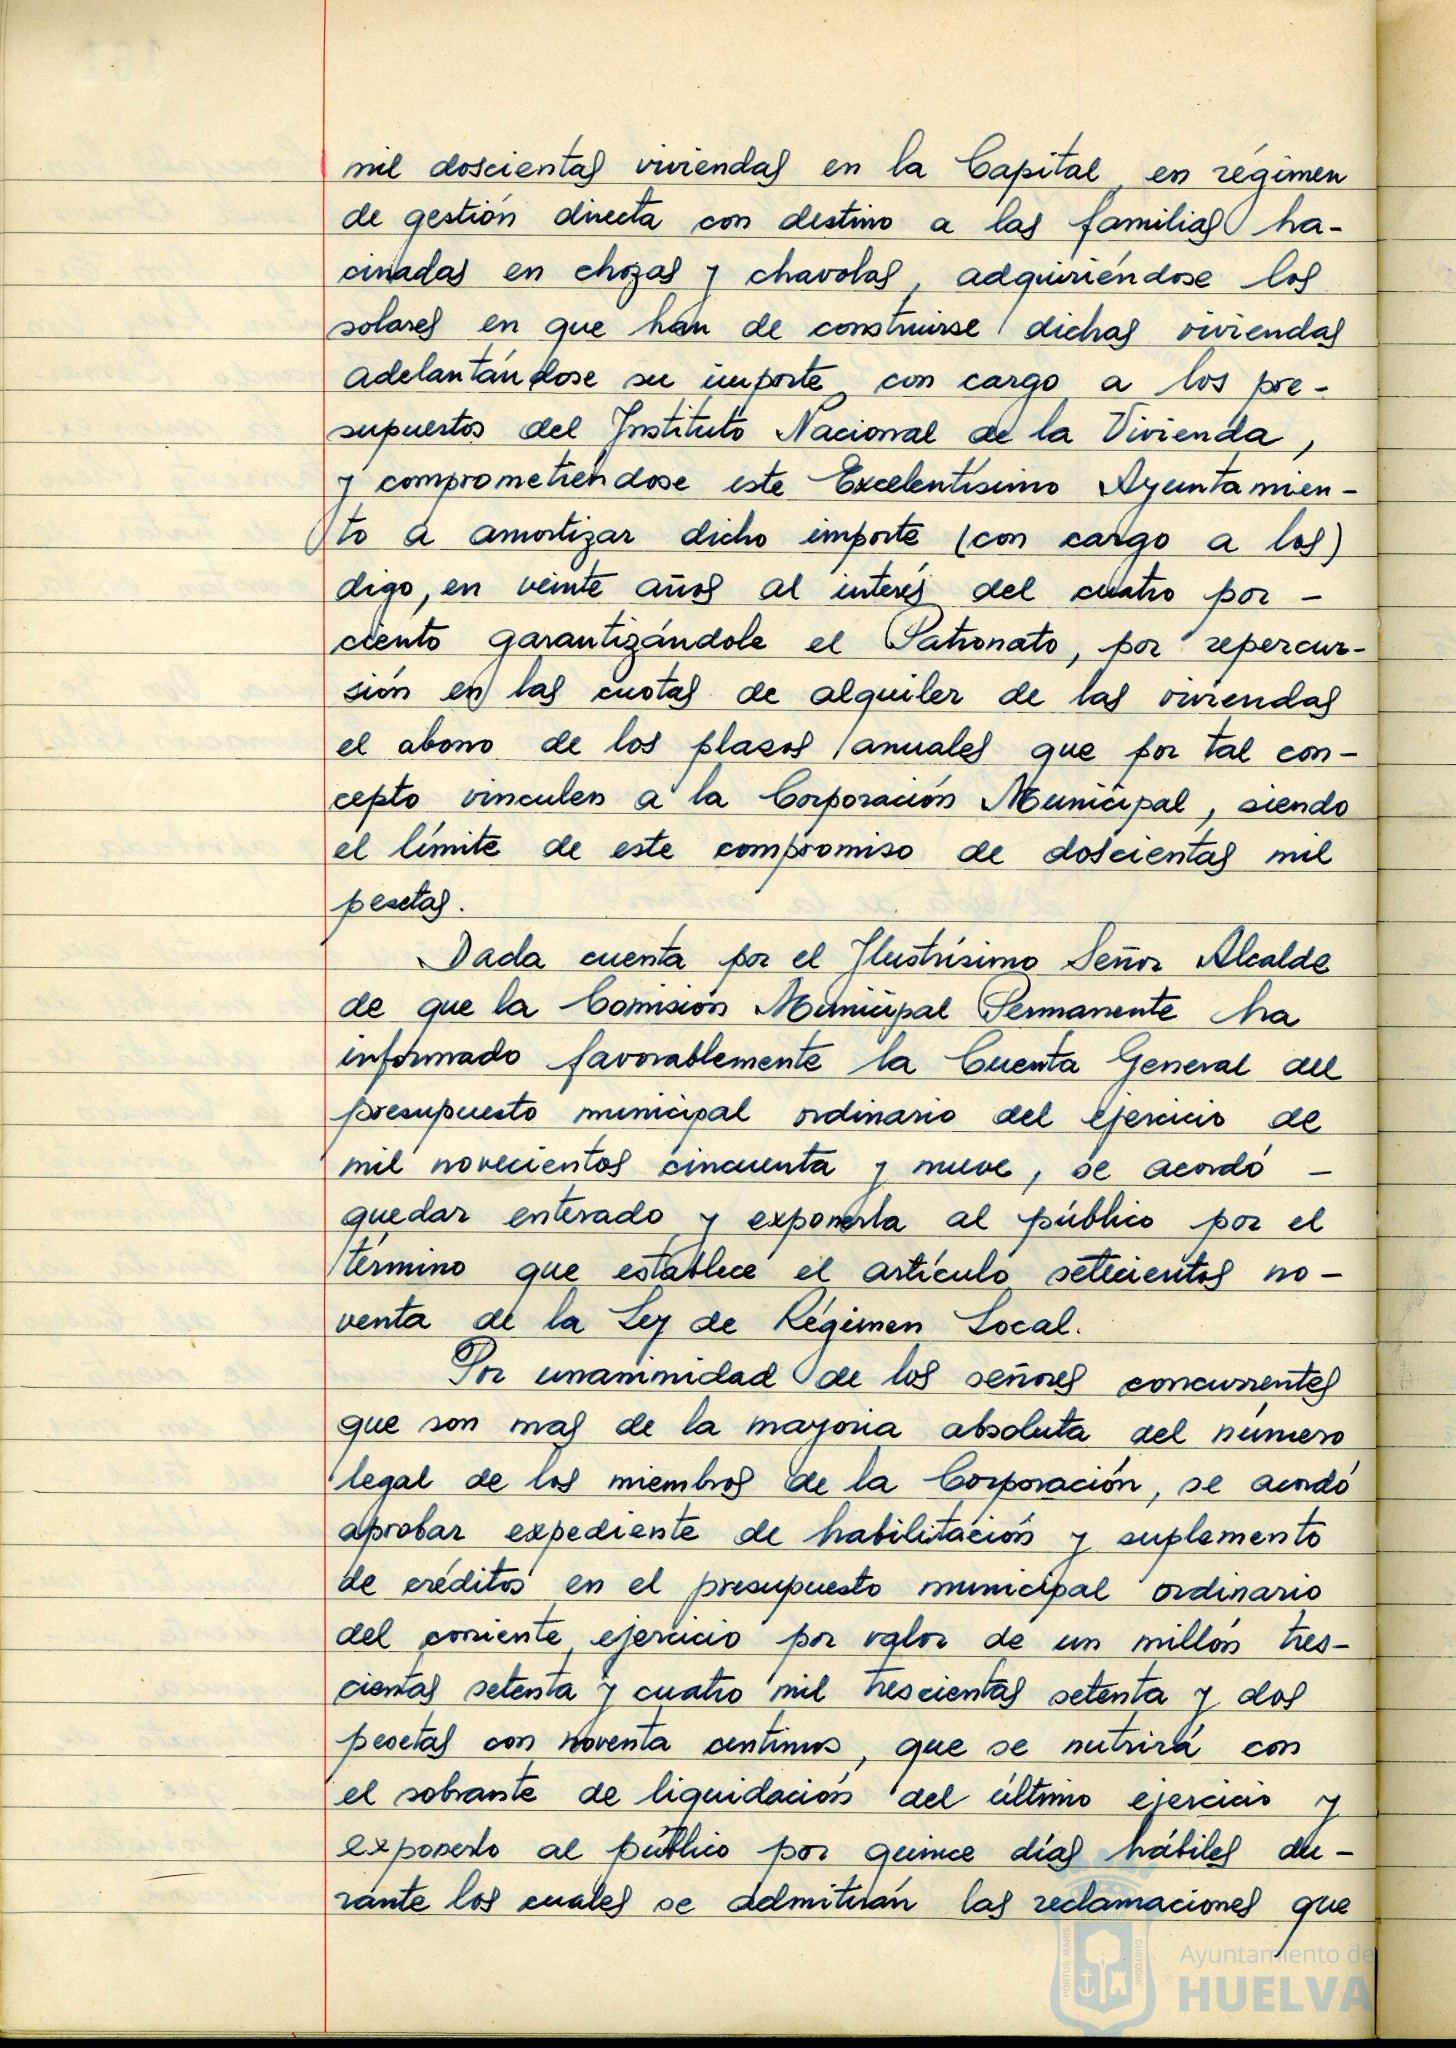 mil doscientas viviendas en la Capital, en régimen
de gestión directa con destino a las familias ha-
cinadas en chozas y chavolas, adquiriéndose los
solares en que han de construirse dichas viviendas
adelantándose su importe, con cargo a los pre-
supuestos del Instituto Nacional de la Vivienda,
y comprometiéndose este Excelentísimo Ayuntamien-
to a amortizar dicho importe (con cargo a los)
digo, en veinte años al interés del cuatro por -
ciento garantizándole el Patronato, por repercur-
sión en las cuotas de alquiler de las viviendas
el abono de los plazos anuales que por tal con-
cepto vinculen a la Corporación Municipal, siendo
el límite de este compromiso de doscientas mil
pesetas.
Dada cuenta por el Ilustrísimo Señor Alcalde
de que la Comisión Municipal Permanente ha
informado favorablemente la Cuenta General del
presupuesto municipal ordinario del ejercicio de
mil novecientos cincuenta y nueve, se acordó -
quedar enterado y exponerla al público por el
término que establece el artículo setecientos no-
venta de la Ley de Régimen Local.
Por unanimidad de los señores concurrentes
que son mas de la mayoria absoluta del número
legal de los miembros de la Corporación, se acordó
aprobar expediente de habilitación y suplemento
de créditos en el presupuesto municipal ordinario
del corriente ejercicio por valor de un millón tres-
cientas setenta y cuatro mil trescientas setenta y dos
pesetas con noventa centimos, que se nutrirá con
el sobrante de liquidación del último ejercicio y
exponerlo al público por quince días hábiles du-
rante los cuales se admitirán las reclamaciones que
PORTUS MARIS CUSTODIA
Ayuntamiento de
HUELVA